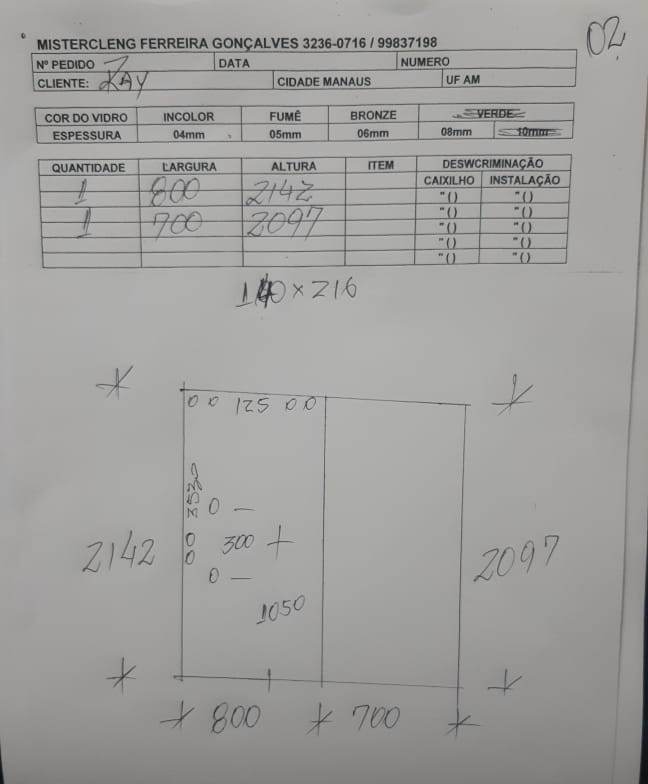 02
MISTERCLENG FERREIRA GONÇALVES 3236-0716 / 99837198
Nº PEDIDO DATA NUMERO
CLIENTE: KAY CIDADE MANAUS UF AM
COR DO VIDRO INCOLOR FUMÊ BRONZE VERDE
ESPESSURA 04mm 05mm 06mm 08mm 10mm
QUANTIDADE LARGURA ALTURA ITEM DESWCRIMINAÇÃO
CAIXILHO INSTALAÇÃO
1 800 2142 "() "()
1 700 2097 "() "()
"() "()
"() "()
"() "()
140 x 216
0 0 125 0 0
3530
0
0
0
300
0
1050
2142
2097
800 700